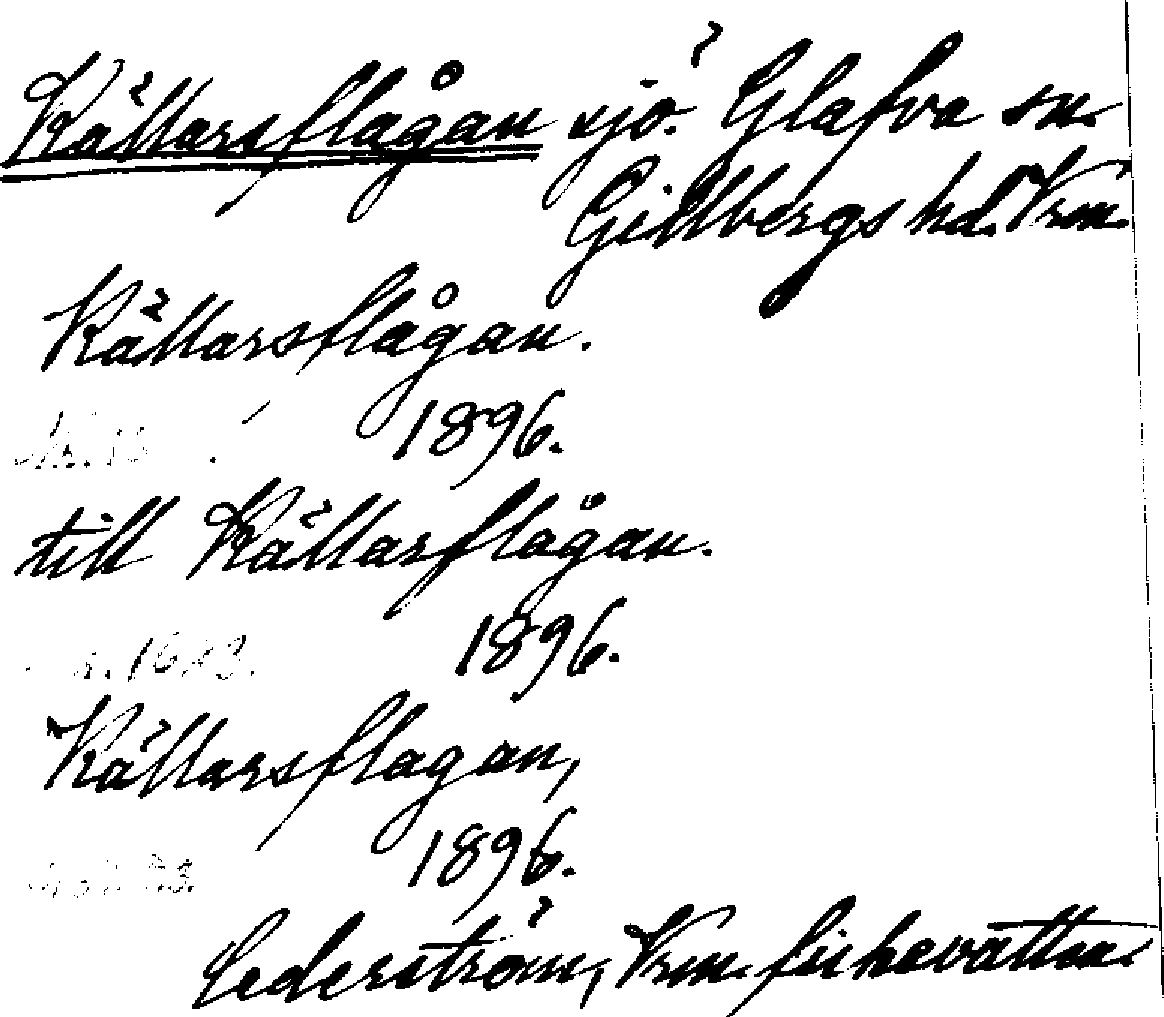 Källarsflågan sjö. Glafva sn.
Gillbergs hd. Vrm.
Källarsflågan.
1896.
till Källarsflågan.
1896.
Källarsflagan,
1896.
Cederström, Vrm. fiskevatten.